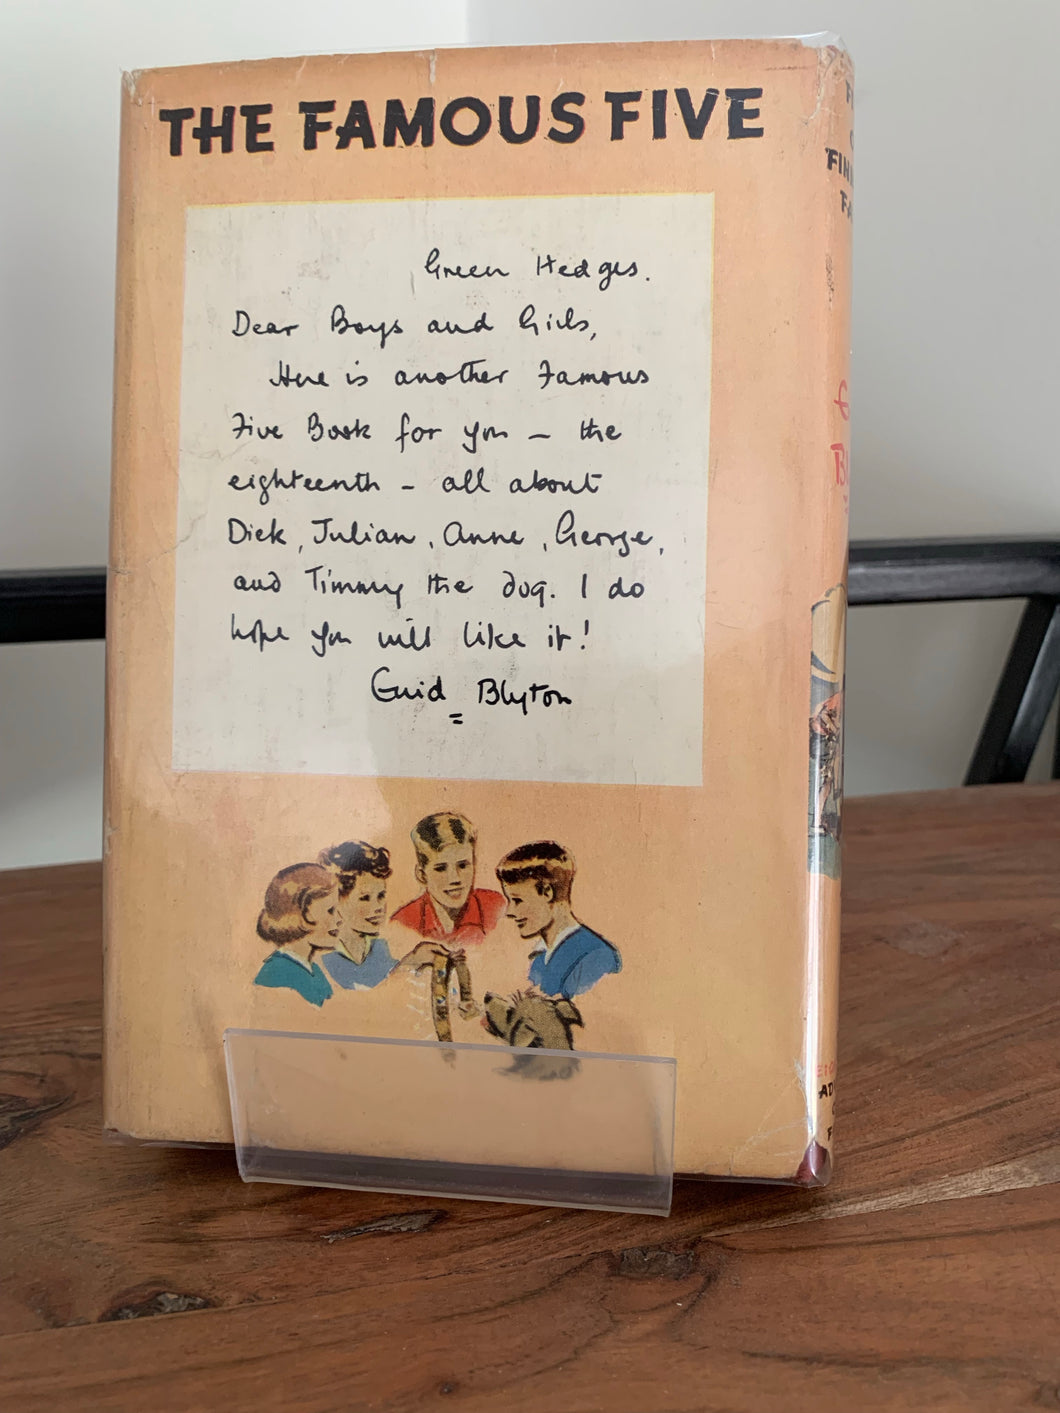 THE FAMOUS FIVE
Green Hedges.
Dear Boys and Girls,
Here is another Famous
Five Book for you - the
eighteenth - all about
Dick, Julian, Anne, George,
and Timmy the dog. I do
hope you will like it!
Enid Blyton